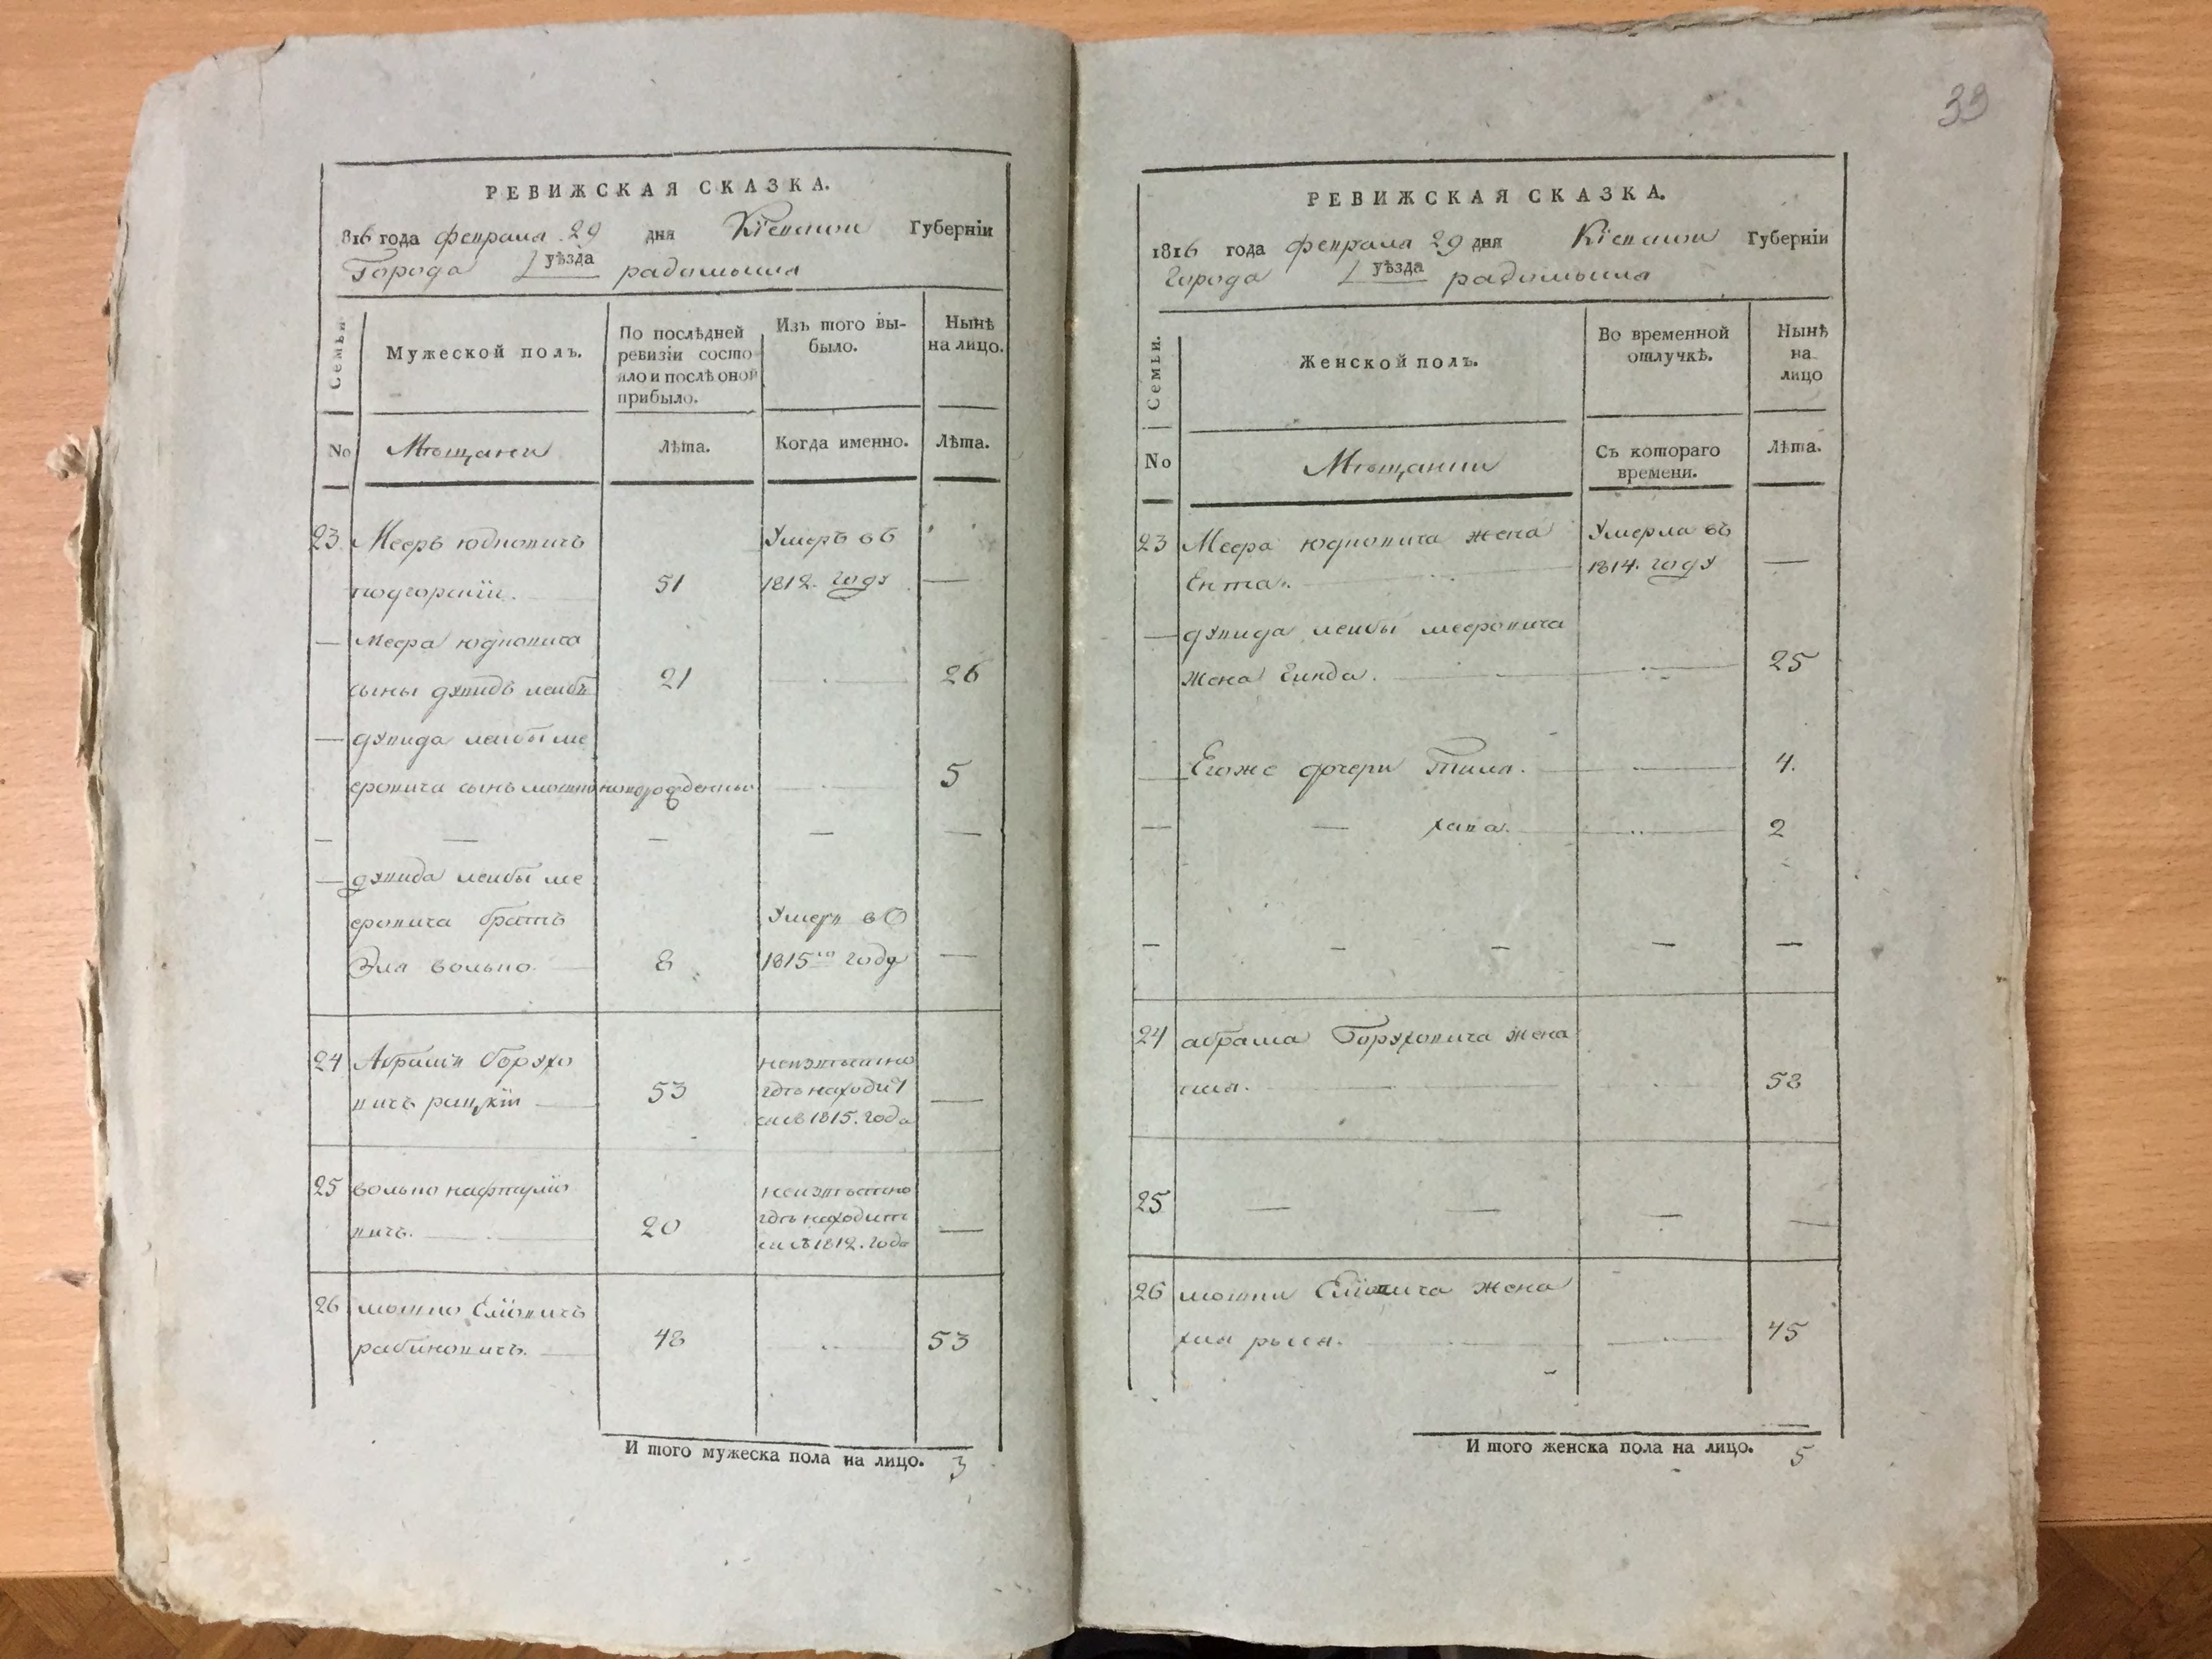 33
РЕВИЖСКАЯ СКАЗКА.
816 года февраля 29 дня Кіевской Губерніи
Города уѣзда радомысля
Семьи
Мужеской полъ.
По послѣдней ревизіи состо яло и послѣ оной прибыло.
Изъ того вы-было.
Нынѣ на лицо.
No
Мѣщани
Лѣта.
Когда именно.
Лѣта.
23 Мееръ юдковичъ Умеръ вб
подгорскій. 51 1812. году —
— меера юдковича
сыны дувидъ лейба 21 26
— дувида лейбы ме
еровича сынъ мошко новорожденный 5
— — — — —
— дувида лейбы ме
еровича братъ Умеръ вб
Эля волько 8 1815го году —
24 Абрамъ борухо неизвѣстно
вичъ рацкій 53 гдѣ находит —
ся с 1815. года
25 волько нафтуліо неизвѣстно
вичъ. 20 гдѣ находит —
ся съ 1812. года
26 мошко Еліовичъ
рабиновичъ. 48 53
И того мужеска пола на лицо. 3
РЕВИЖСКАЯ СКАЗКА.
1816 года февраля 29 дня Кіевской Губерніи
города уѣзда радомысля
Семьи.
Женской полъ.
Во временной отлучкѣ.
Нынѣ на лицо
No
Мѣщанки
Съ котораго времени.
Лѣта.
23 Меера юдковича жена Умерла въ
Ента. 1814. году —
— дувида лейбы мееровича
жена Гинда. 25
— Егоже дочери Тила. 4.
— — хава. 2
— — — — —
24 абрама Боруховича жена
сима. 58
25 — — — —
26 мошки Еліовича жена
хая рыся. 45
И того женска пола на лицо. 5